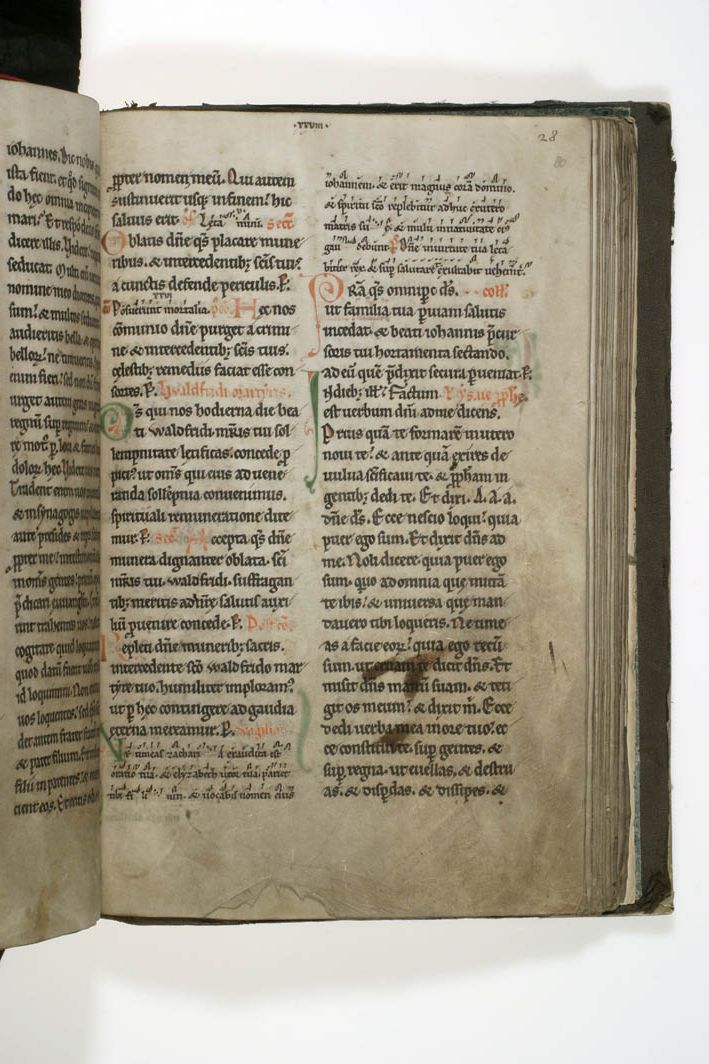 iohannes. hic nobis
ista fient. et
do hec omnia
mari?
dicere illis. Videte
seducat.
nomine meo
sum?
audieritis bella
enim fieri? sed
regnū sup
dolorꝝ hec
Tradent enim
& in synagogis
ante presides &
ꝓpter me?
p̄dicari euuangliū.
cogitare quid
quod datū fuerit
id loquimini. Non
uos loquentes. sed
der autem frater
& pater filium. Et
filii in parentes. &
cient eos. Et eritis
·xxviii·
28
80
ꝓpter nomen meū. Qui autem
sustinuerit usq; in finem? hic
saluus erit.
Oblatis dn̄e q̄s placare mune
ribus. & intercedentibꝫ sc̄is tuis?
a cunctis defende periculis. P.
Posuerunt mortalia. Hec nos
cōmunio dn̄e purget a crimi
ne. & intercedentibꝫ sc̄is tuis?
cęlestibꝫ remediis faciat esse con
sortes. P. Waldfridi
D̄s qui nos hodierna die bea
ti waldfridi mr̄is tui sol
lempnitate letificas? concede ꝓ
pici? ut om̄s qui eius ad uene
randa sollēpnia conuenimus.
spirituali remuneratione dite
mur. P. Accepta q̄s dn̄e
munera dignanter oblata. sc̄i
mr̄is tui waldfridi. suffragan
tibꝫ meritis ad nr̄e salutis auxi
liū ꝓuenire concede. P.
Repleti dn̄e muneribꝫ sacris.
intercedente sc̄o waldfrido mar
tyre tuo. humiliter imploram?
ut p̱ hec contingere ad gaudia
ęterna mereamur. P.
Ne timeas zacharia exaudita est
oratio tua. & elyzabeth uxor tua pariet
tibi filium & uocabis nomen eius
iohannem. & erit magnus corā domino.
& spiritu sc̄o replebitur adhuc ex utero
matris suę & multi in natiuitate ei?
gaudebunt. Dn̄e in uirtute tua
letabitur rex. & sup̱ salutare exultabit uehement̄.
PRā q̄s omnip̱o d̄s. coll.
ut familia tua p̱ uiam salutis
incedat. & beati iohannis p̄cur
soris tui hortamenta sectando.
ad eū quē p̄dixit secura p̱ueniat. P.
In diebꝫ ill? Factum
est uerbum dn̄i ad me dicens.
Priusquā te formarem in utero
noui te? & ante quā exires de
uulua sc̄ificaui te. & ꝓph̄am in
gentibꝫ dedi te. Et dixi. A. a. a.
dn̄e d̄s. Ecce nescio loqui? quia
puer ego sum. Et dixit dn̄s ad
me. Noli dicere. quia puer ego
sum. quo ad omnia quę mittā
te ibis? & uniuersa quę man
dauero tibi loqueris. Ne time
as a facie eorꝫ? quia ego tecū
sum. ut eruam te dicit dn̄s. Et
misit dn̄s manū suam. & teti
git os meum? & dixit m̄. Ecce
dedi uerba mea in ore tuo? ec
ce constitui te sup̱ gentes. &
sup̱ regna. ut euellas. & destru
as. & disperdas. & dissipes. &